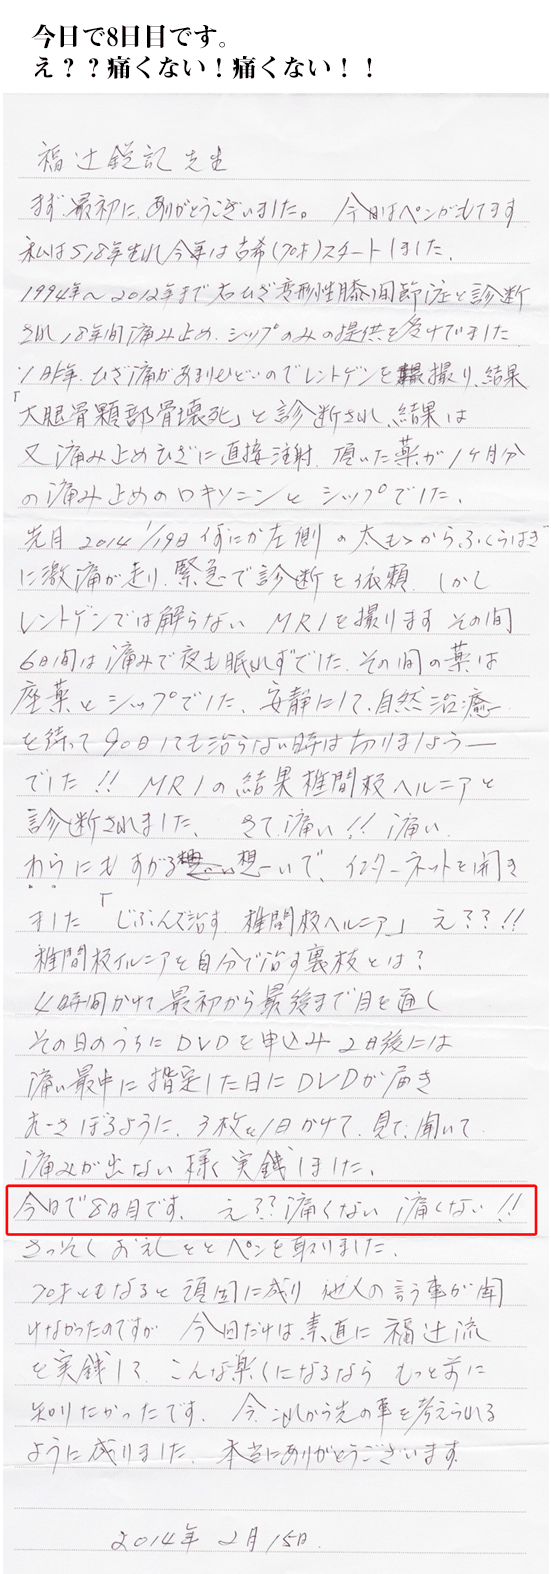 今日で8日目です。
え？？痛くない！痛くない！！
福辻鋭記先生
まず最初に、ありがとうございました。 今日はペンがもてます
私はS18年生れ今年は古希(70才)スタートしました、
1994年〜2012年まで右ひざ変形性膝関節症と診断
され18年間痛み止め、シップのみの提供を受けてました
一昨年、ひざ痛があまりひどいのでレントゲンを撮り、結果
「大腿骨顆部骨壊死」と診断され、結果は
又痛み止めひざに直接注射、頂いた薬が1ヶ月分
の痛み止めのロキソニンと シップでした、
先月 2014 1/19日 左側の太ももからふくらはぎ
に激痛が走り、緊急で診断を依頼、しかし
レントゲンでは解らない MRIを撮ります その間
6日間は痛みで夜も眠れずでした、その間の薬は
座薬とシップでした、安静にして、自然治癒
を待って90日しても治らない時は切りましょうー
でした!! MRIの結果椎間板ヘルニアと
診断されました、 さて、痛い!! 痛い、
わらにもすがる想いで、インターネットを開き
ました「じぶんで治す 椎間板ヘルニア」 え??!!
椎間板ヘルニアを自分で治す裏技とは?
4時間かけて最初から最後まで目を通し
その日のうちにDVDを申込み 2日後には
痛い最中に指定した日にDVDが届き
むさぼるように、3枚を1日かけて、見て、聞いて、
痛みが出ない様に実銭しました、
今日で8日目です、 え??痛くない 痛くない!!
さっそく お礼をとペンを取りました、
70才ともなると頑固に成り 他人の言う事が聞
けなかったのですが 今日だけは素直に福辻流
を実銭して、こんな楽しになるなら もっと前に
知りたかったです、 今、これから先の事を考えられる
ように成りました、本当にありがとうございます。
2014年 2月15日.